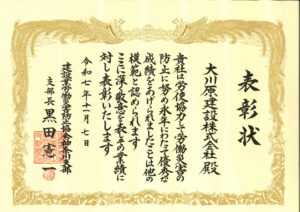 表彰状
大川原建設株式会社殿
貴社は労使協力して労働災害の
防止に努め永年にわたて優秀な
成績をあげられましたことは他の
模範と認められます
ここに深く敬意を表しその業績に
対し表彰いたします
令和七年十一月七日
建設業労働災害防止協会神奈川支部
支部長 黒田憲一